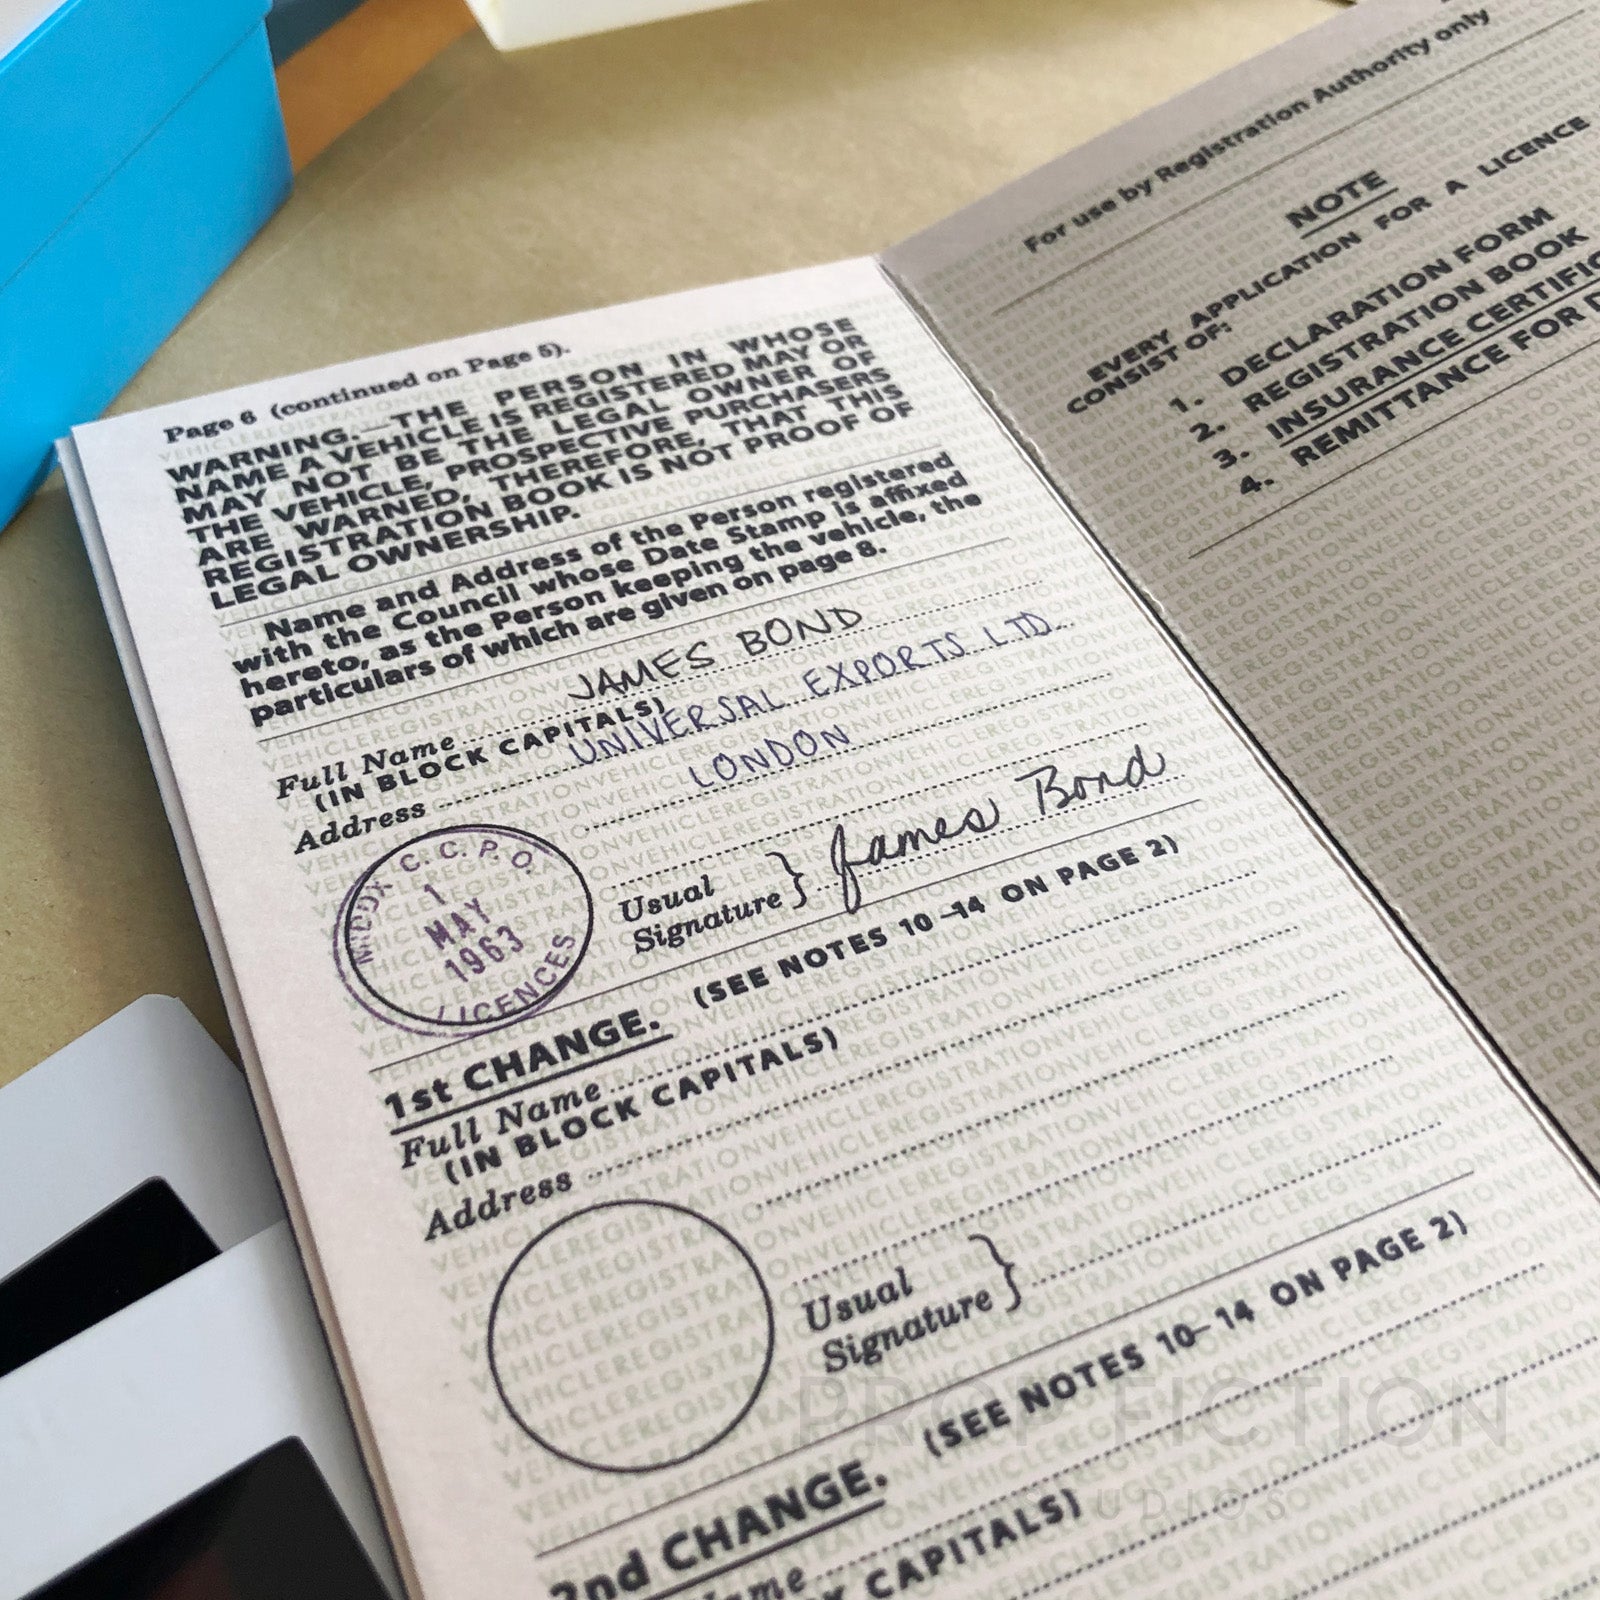 Page 6 (continued on Page 5).
WARNING.—THE PERSON IN WHOSE
NAME A VEHICLE IS REGISTERED MAY OR
MAY NOT BE THE LEGAL OWNER OF
THE VEHICLE, PROSPECTIVE PURCHASERS
ARE WARNED, THEREFORE, THAT THIS
REGISTRATION BOOK IS NOT PROOF OF
LEGAL OWNERSHIP.
Name and Address of the Person registered
with the Council whose Date Stamp is affixed
hereto, as the Person keeping the vehicle, the
particulars of which are given on page 8.
Full Name JAMES BOND
(IN BLOCK CAPITALS)
Address UNIVERSAL EXPORTS LTD.
LONDON
MIDDX C.C.P.O.
1
MAY
1963
LICENCES
Usual
Signature } James Bond
1st CHANGE. (SEE NOTES 10-14 ON PAGE 2)
Full Name
(IN BLOCK CAPITALS)
Address
Usual
Signature }
2nd CHANGE. (SEE NOTES 10-14 ON PAGE 2)
Name
CAPITALS)
For use by Registration Authority only
NOTE
EVERY APPLICATION FOR A LICENCE
CONSIST OF:
1. DECLARATION FORM
2. REGISTRATION BOOK
3. INSURANCE CERTIFIC
4. REMITTANCE FOR D
PROP FICTION
STUDIOS